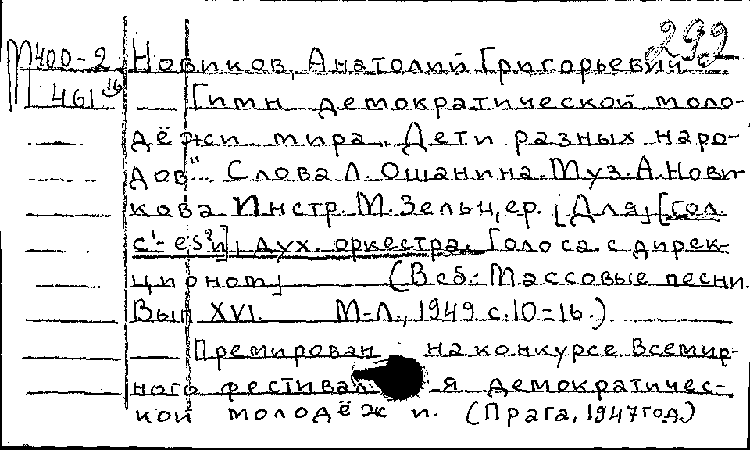 292
М 400-2 Новиков, Анатолий Григорьевич
461 16 Гимн демократической моло-
дёжи мира „Дети разных наро-
дов". Слова Л. Ошанина. Муз. А. Нови-
кова. Инстр. М. Зельцер. [Для] [гол.
c'-es²и] дух. оркестра. Голоса с дирек-
ционом]
(В сб.: Массовые песни.
Вып XVI. М-Л., 1949 с. 10-16.)
Премирован на конкурсе Всемир-
ного фестивал я демократичес-
кой молодёжи. (Прага, 1947 год.)